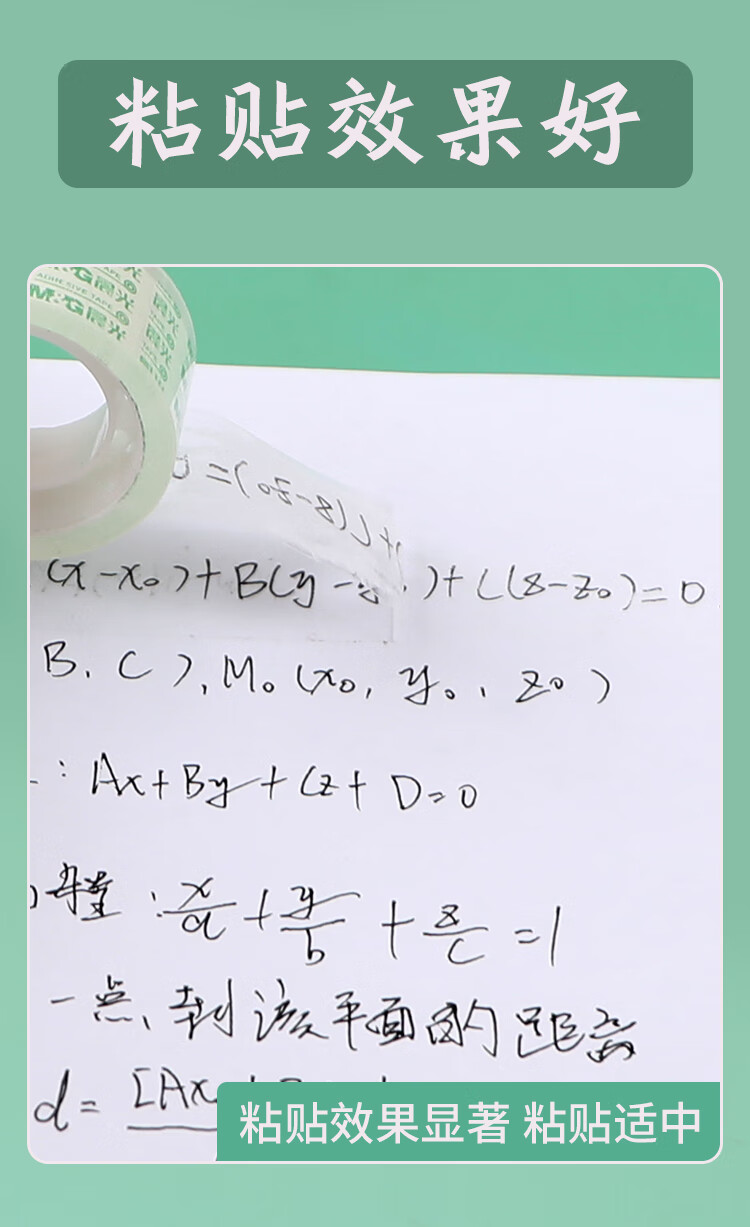 粘贴效果好
M&G晨光
ADHESIVE TAPE
M&G晨光
(x-x₀)+B(y-  )+C(z-z₀)=0
B, C), M₀(x₀, y₀, z₀)
: Ax+By+Cz+D=0
: x/a + y/b + z/c =1
一点到该平面的距离
d= [Ax
粘贴效果显著 粘贴适中